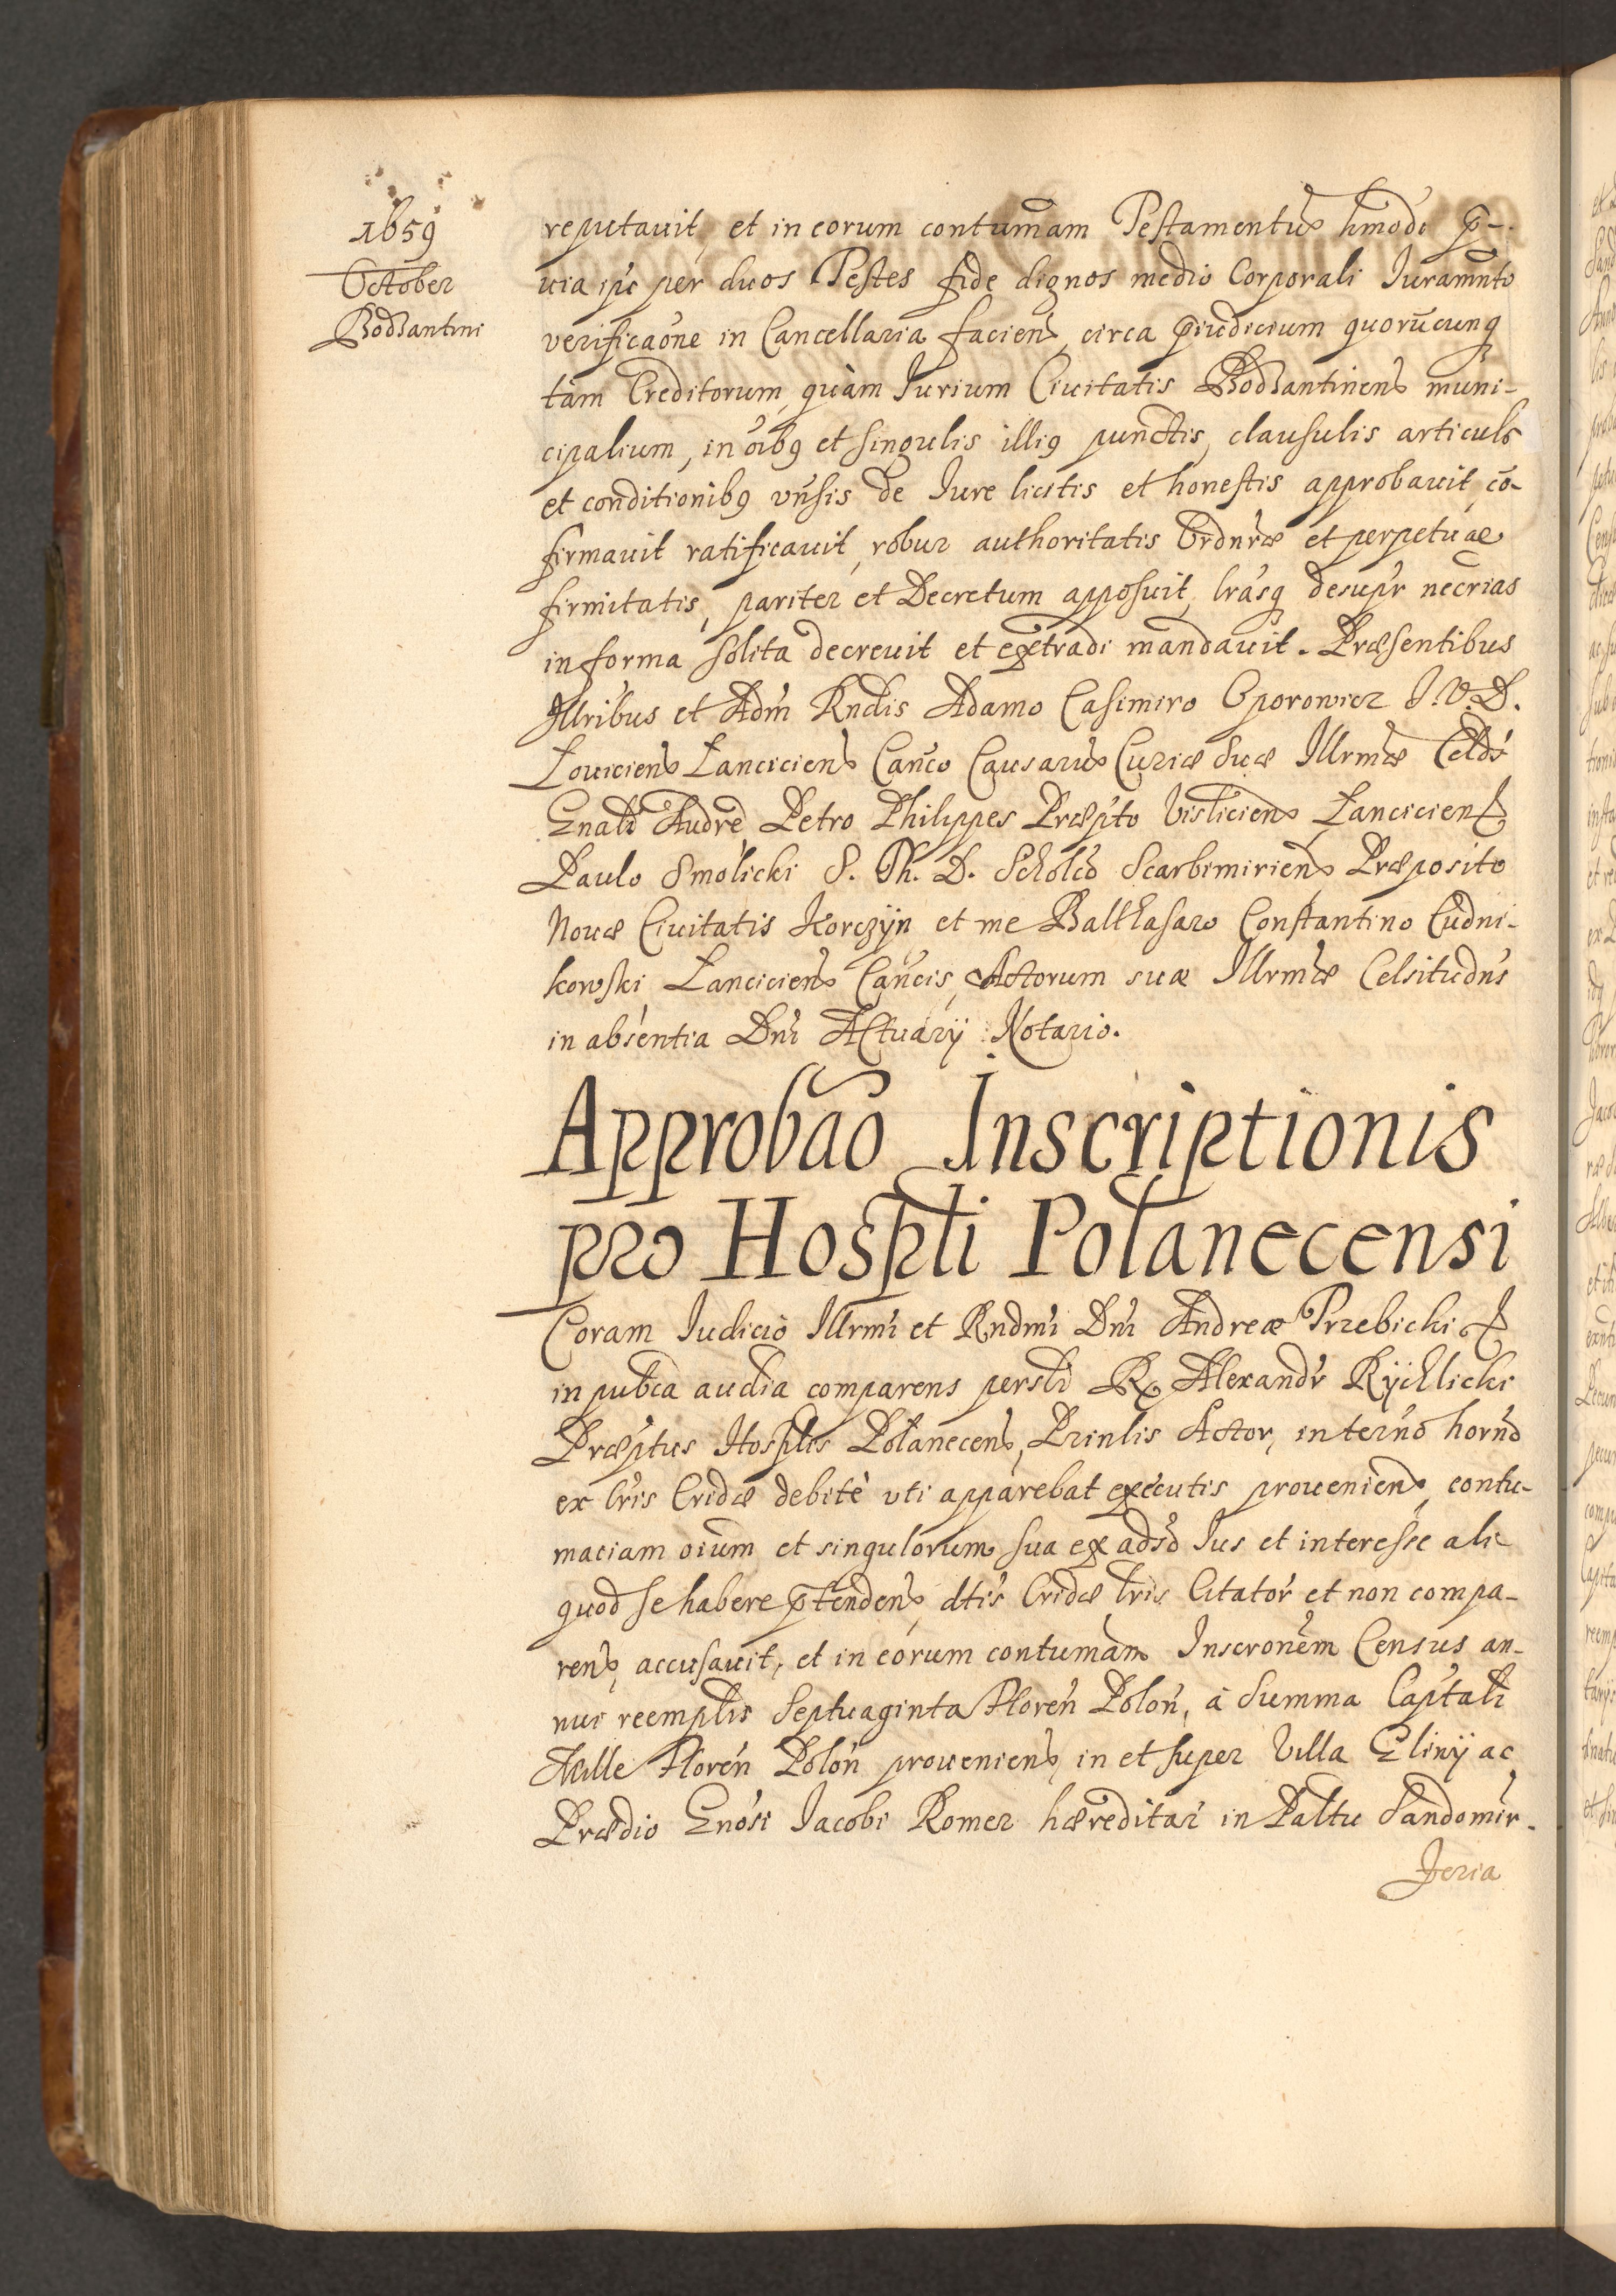 1659
October
Bodzantini
reputauit, et in eorum contumām Testamentū hmōdi p̄-
uia ips per duos Testes fide dignos medio Corporali Iuramn̄to
verificaōne in Cancellaria faciend, circa p̄iudicium quorūcunq
tam Creditorum, quàm Iurium Ciuitatis Bodzantinens muni-
cipalium, in oībq et singulis illiq punctis, clausulis articulis
et conditionibq vn̄sis de Iure licitis et honestis approbauit, cō-
firmauit ratificauit, robur authoritatis Ordnrīæ et perpetuæ
firmitatis, pariter et Decretum apposuit, lrāsq desupr necrias
in forma solita decreuit et extradi mandauit. Præsentibus
Illribus et Adm̄ Rndis Adamo Casimiro Oporowicz I.V.D.
Louiciens Lanciciens Canco Causarū Curiæ Suæ Illrmæ Celds
Gnali Audre Petro Philippes Præpto Visliciens Lanciciens
Paulo Smolicki S. Th. D. Scholco Scarbimiriens, Præposito
Nouæ Ciuitatis Korczÿn et me Balthasaro Constantino Cudni-
kowski Lanciciens Cancis, Actorum suæ Illrmæ Celsitudnis
in absentia Dni Actuarÿ Notario.
Approbaō Inscriptionis
pro Hosptli Polanecensi
Coram Iudicio Illrmi et Rndmi Dni Andreæ Trzebicki
in pubca audia comparens persli R Alexandr Rÿchlicki
Præptus Hosplis Polanecens, Prinlis Actor, in terno horno
ex lris Cridæ debite vti apparebat executis proueniens, contu-
maciam oium et singulorum sua ex adso Ius et interesse ali
quod se habere p̄tendens, dtis Cridæ lris Citator et non compa-
rens, accusauit, et in eorum contumam Inscronem Census an-
nui reemplis Septuaginta Floren Polon, à Summa Captali
Mille Floren Polon proueniens, in et super Villa Glinÿ ac
Prædio Gnosi Iacobi Romer hæreditar in Paltu Sandomir-
Feria